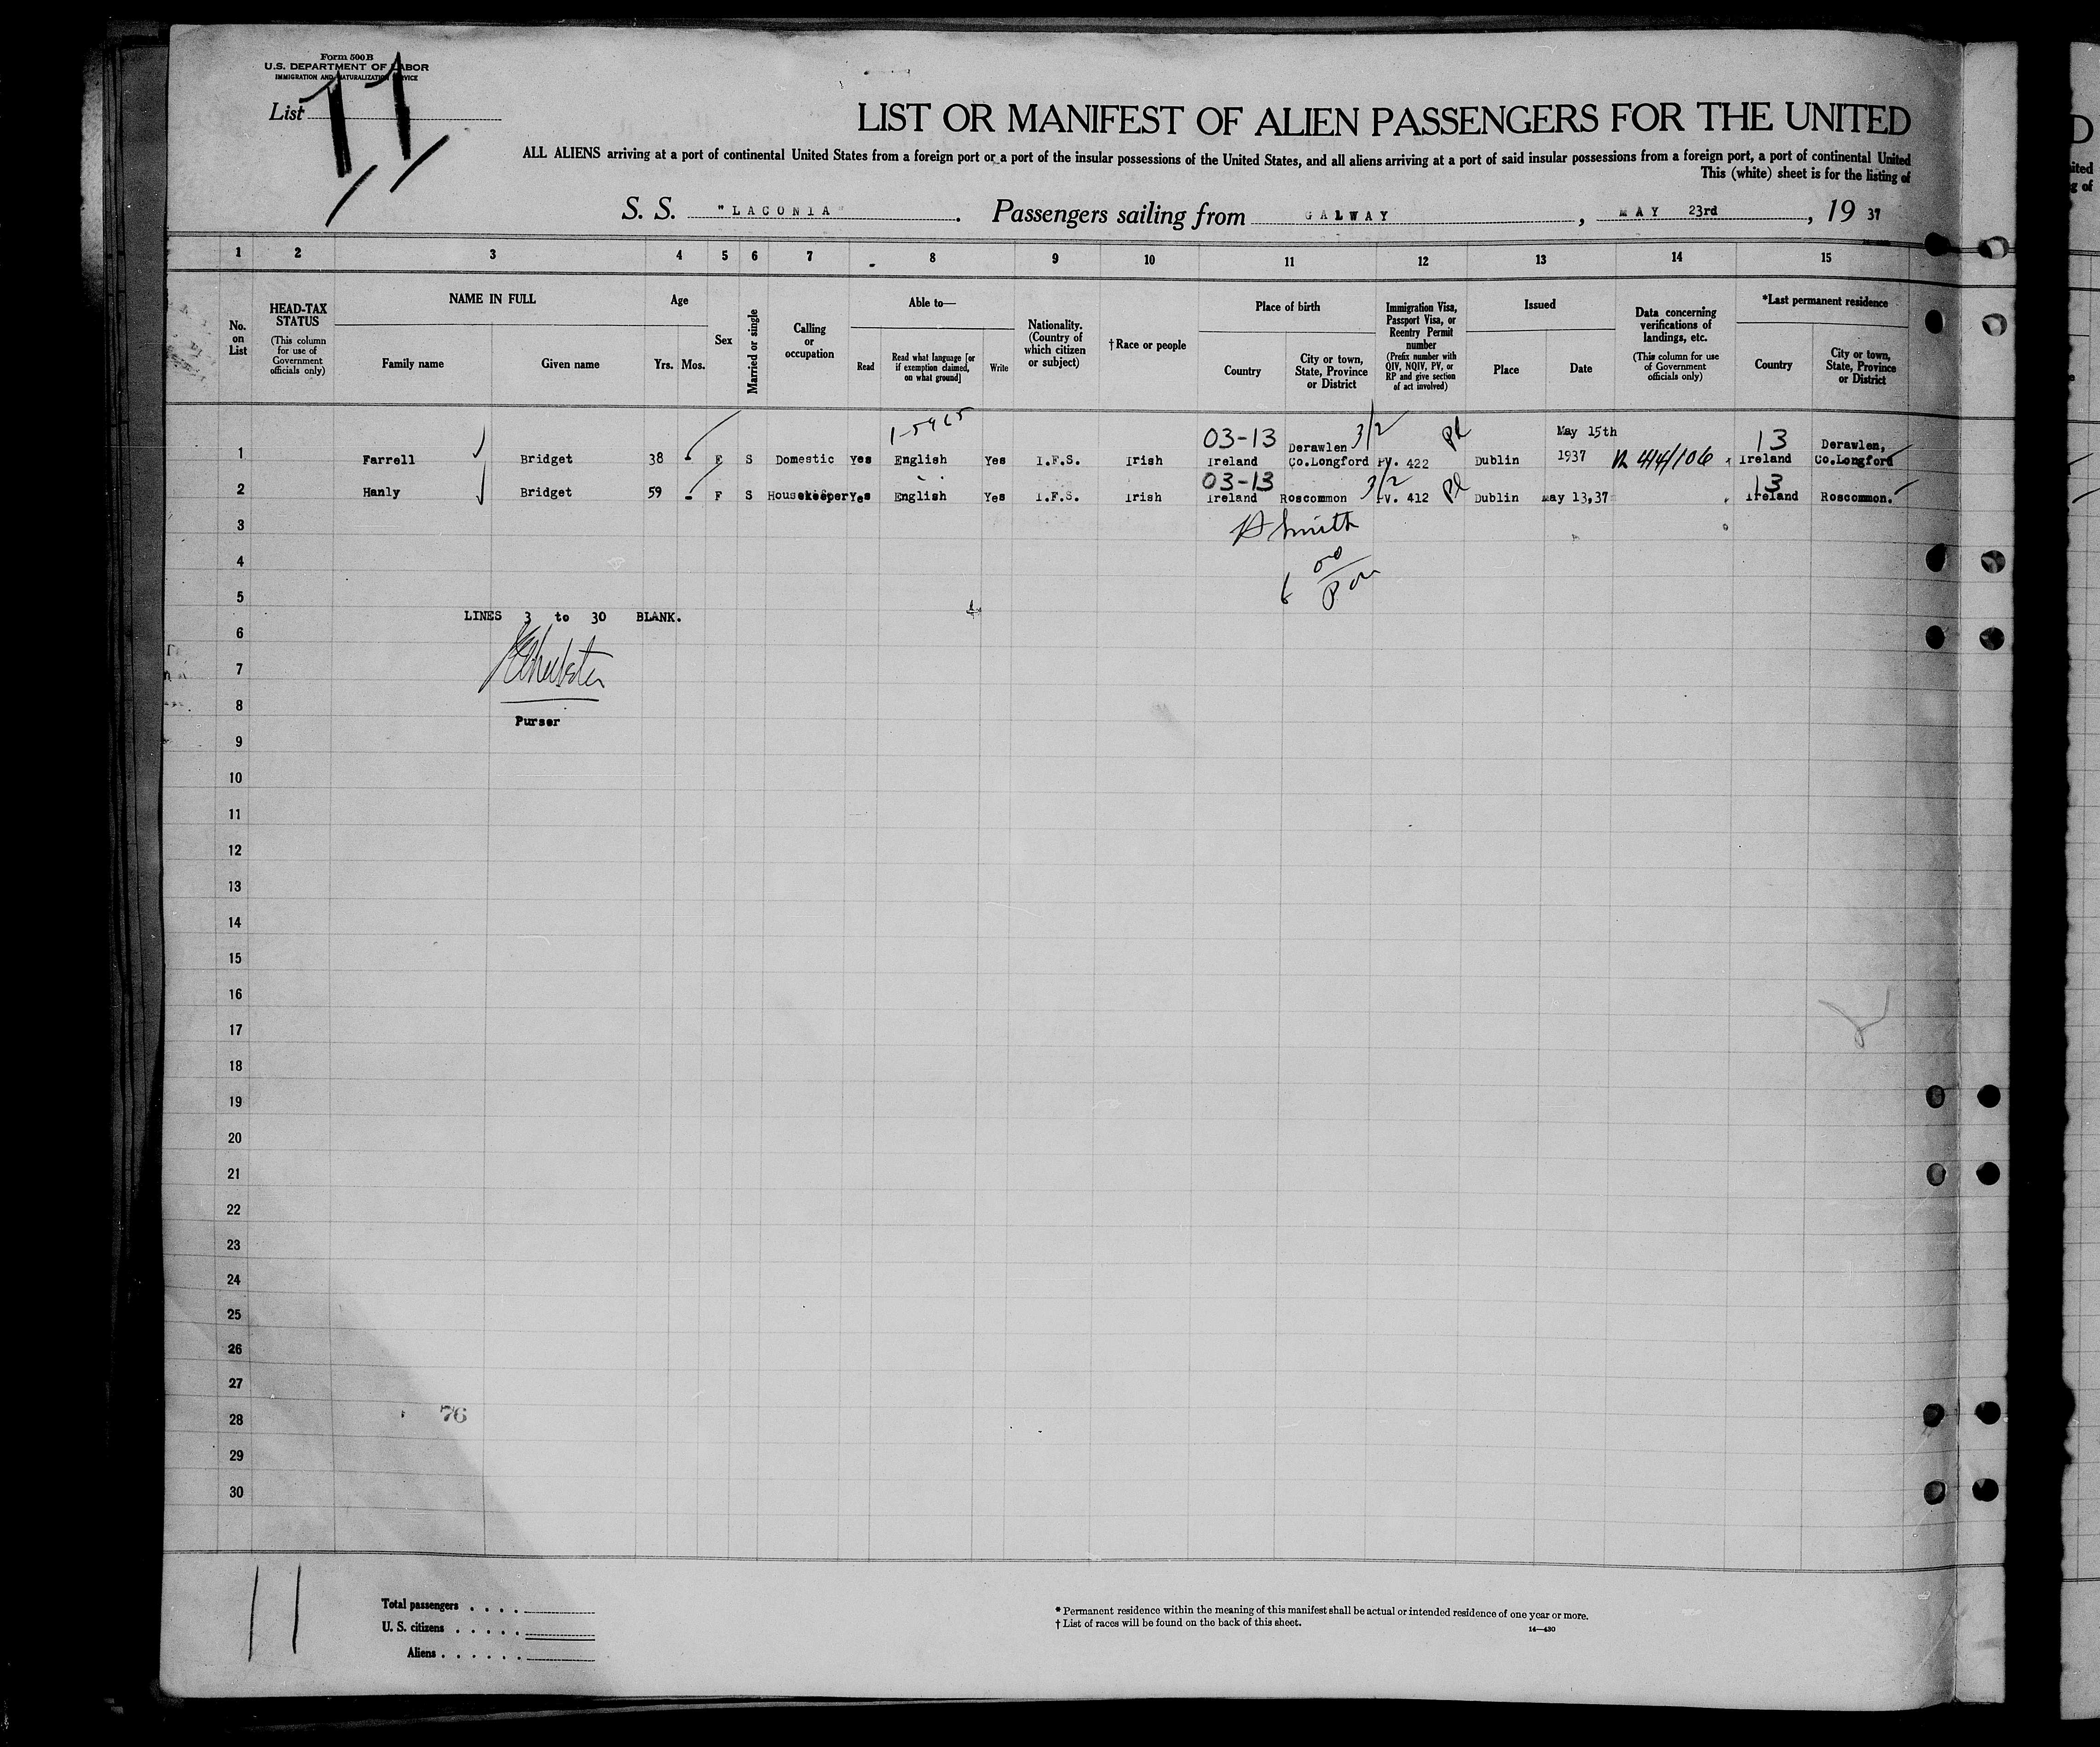 Form 500B
U.S. DEPARTMENT OF LABOR
IMMIGRATION AND NATURALIZATION SERVICE
List 11
LIST OR MANIFEST OF ALIEN PASSENGERS FOR THE UNITED
ALL ALIENS arriving at a port of continental United States from a foreign port or a port of the insular possessions of the United States, and all aliens arriving at a port of said insular possessions from a foreign port, a port of continental United
This (white) sheet is for the listing of
S. S. "LACONIA". Passengers sailing from GALWAY, MAY 23rd, 19 37
1 2 3 4 5 6 7 8 9 10 11 12 13 14 15
No. on List
HEAD-TAX STATUS
(This column for use of Government officials only)
NAME IN FULL
Family name
Given name
Age
Yrs. Mos.
Sex
Married or single
Calling or occupation
Able to—
Read
Read what language [or if exemption claimed, on what ground]
Write
Nationality. (Country of which citizen or subject)
†Race or people
Place of birth
Country
City or town, State, Province or District
Immigration Visa, Passport Visa, or Reentry Permit number
(Prefix number with QIV, NQIV, PV, or RP and give section of act involved)
Issued
Place
Date
Data concerning verifications of landings, etc.
(This column for use of Government officials only)
*Last permanent residence
Country
City or town, State, Province or District
1-5965
03-13 Derawlen 3/2 May 15th 13 Derawlen,
1 Farrell Bridget 38 - F S Domestic Yes English Yes I.F.S. Irish Ireland Co.Longford PV. 422 Dublin 1937 R 414/106 Ireland Co.Longford
03-13 3/2 13
2 Hanly Bridget 59 - F S Housekeeper Yes English Yes I.F.S. Irish Ireland Roscommon PV. 412 Dublin May 13,37 Ireland Roscommon.
3
H Smith
4
5
LINES 3 to 30 BLANK.
6
7
8
Purser
9
10
11
12
13
14
15
16
17
18
19
20
21
22
23
24
25
26
27
28
76
29
30
11
Total passengers . . . .
U. S. citizens . . . . .
Aliens . . . . . .
* Permanent residence within the meaning of this manifest shall be actual or intended residence of one year or more.
† List of races will be found on the back of this sheet.
14—430